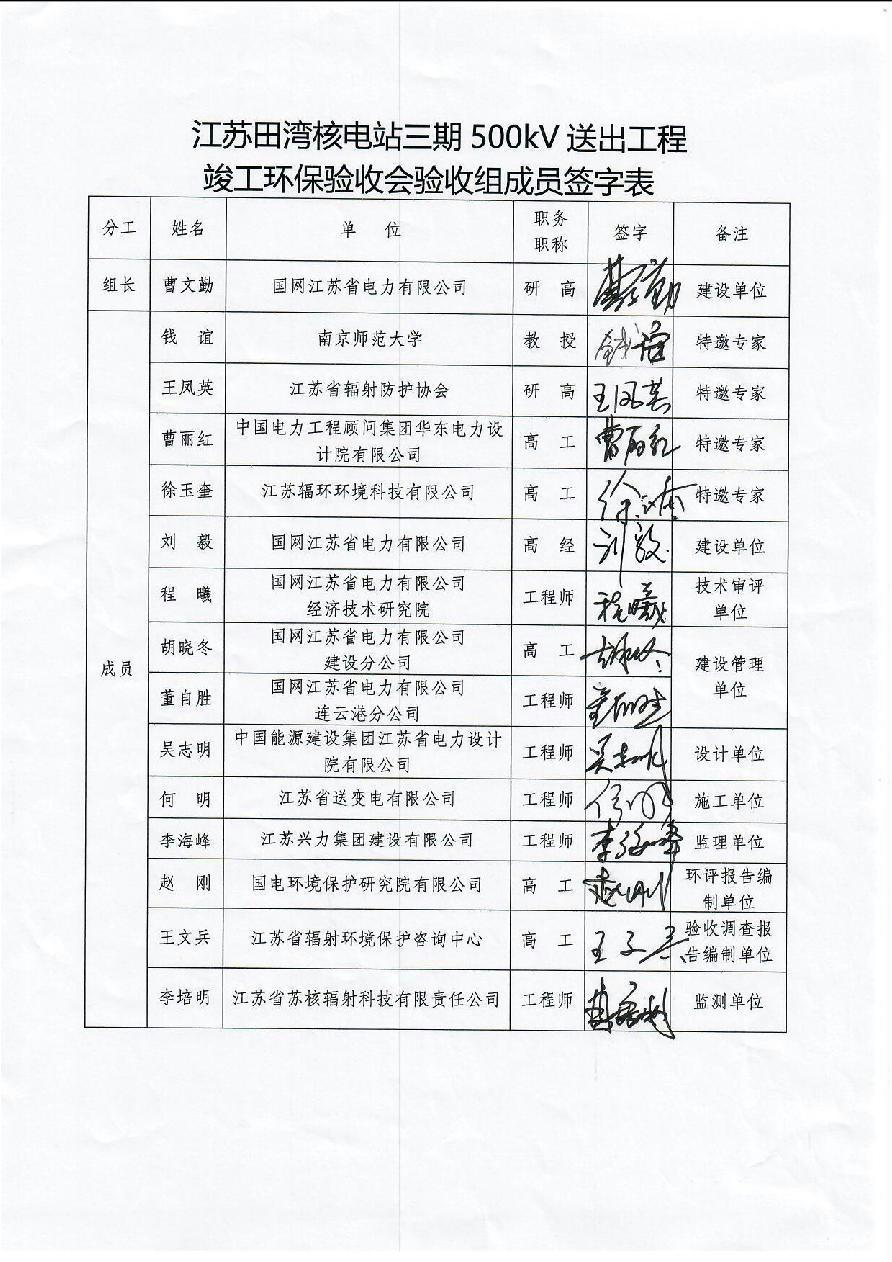 江苏田湾核电站三期 500kV 送出工程
竣工环保验收会验收组成员签字表
分工 姓名 单 位 职务职称 签字 备注
组长 曹文勤 国网江苏省电力有限公司 研 高 建设单位
成员
钱 谊 南京师范大学 教 授 钱谊 特邀专家
王凤英 江苏省辐射防护协会 研 高 王凤英 特邀专家
曹丽红 中国电力工程顾问集团华东电力设计院有限公司 高 工 曹丽红 特邀专家
徐玉奎 江苏辐环环境科技有限公司 高 工 特邀专家
刘 毅 国网江苏省电力有限公司 高 经 刘毅 建设单位
程 曦 国网江苏省电力有限公司经济技术研究院 工程师 程曦 技术审评单位
胡晓冬 国网江苏省电力有限公司建设分公司 高 工 建设管理单位
董自胜 国网江苏省电力有限公司连云港分公司 工程师
吴志明 中国能源建设集团江苏省电力设计院有限公司 工程师 吴志明 设计单位
何 明 江苏省送变电有限公司 工程师 何明 施工单位
李海峰 江苏兴力集团建设有限公司 工程师 李海峰 监理单位
赵 刚 国电环境保护研究院有限公司 高 工 环评报告编制单位
王文兵 江苏省辐射环境保护咨询中心 高 工 验收调查报告编制单位
李培明 江苏省苏核辐射科技有限责任公司 工程师 监测单位